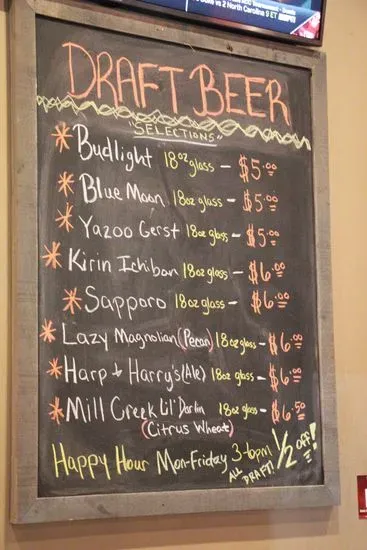 Duke vs 2 North Carolina 9 ET ESPN
DRAFT BEER
"SELECTIONS"
* Budlight 18oz glass - $5.00
* Blue Moon 18oz glass - $5.00
* Yazoo Gerst 18oz glass - $5.00
* Kirin Ichiban 18oz glass - $6.00
* Sapporo 18oz glass - $6.00
* Lazy Magnolian (Pecan) 18oz glass - $6.00
* Harp & Harry's (Ale) 18oz glass - $6.00
* Mill Creek Lil' Darlin 18oz glass - $6.50
(Citrus Wheat)
Happy Hour Mon-Friday 3-6pm 1/2 OFF!
ALL DRAFT!